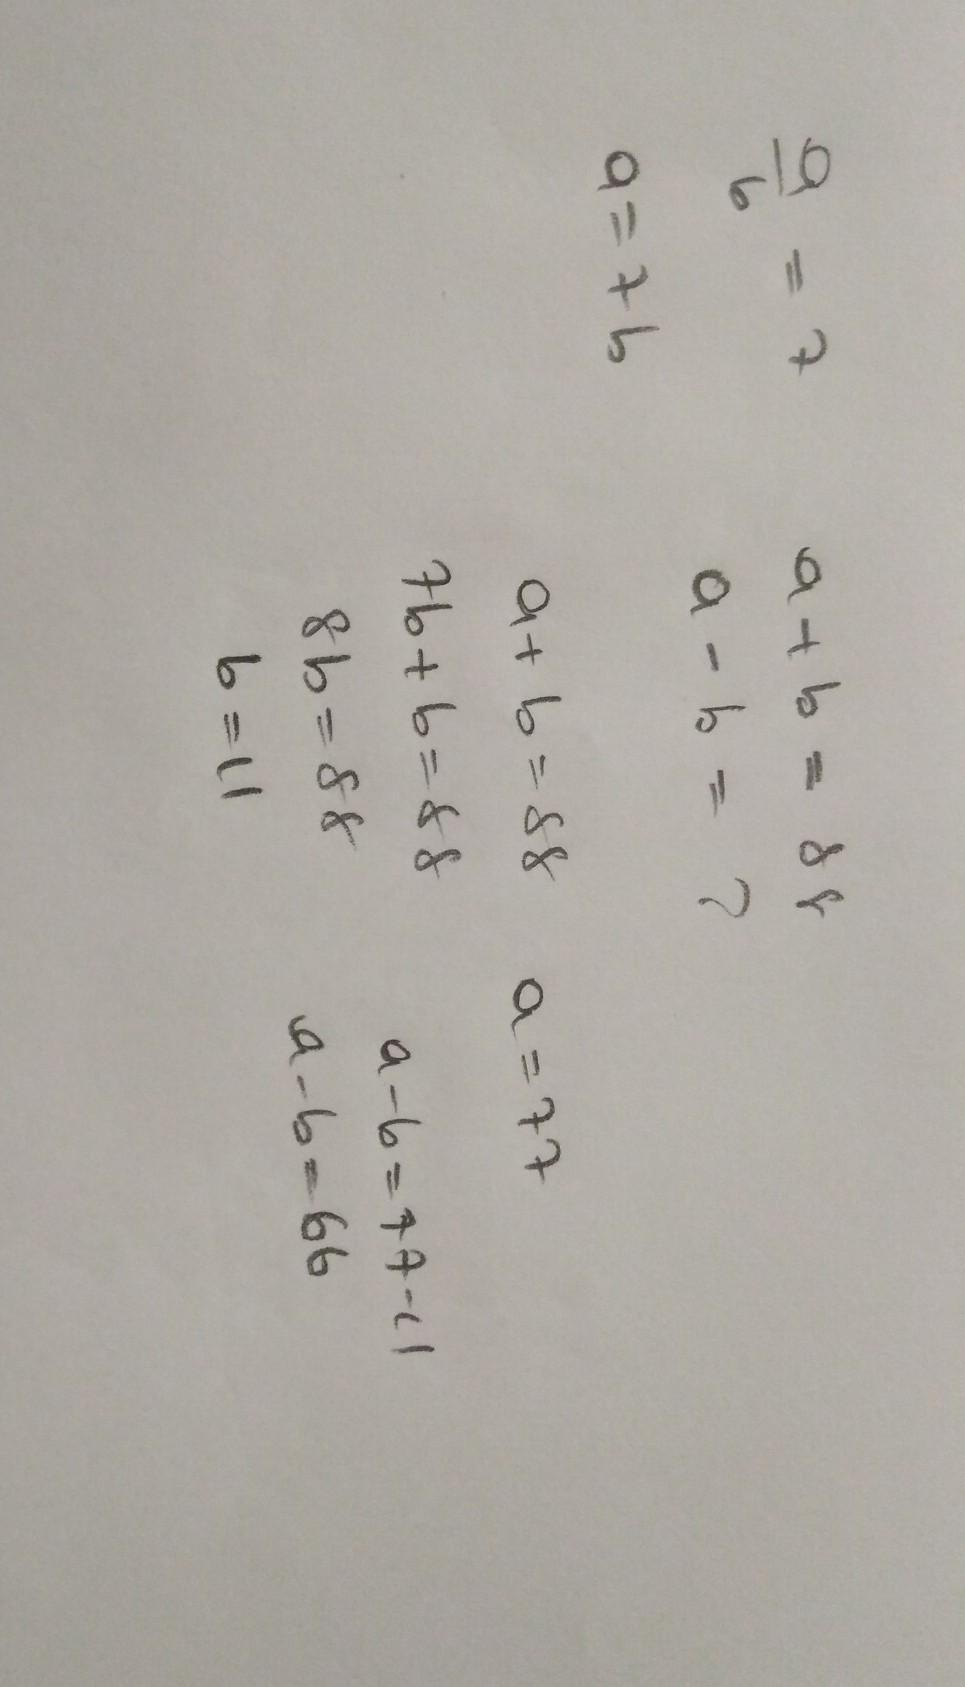 a/b = 7
a = 7b
a + b = 88
a - b = ?
a + b = 88
7b + b = 88
8b = 88
b = 11
a = 77
a - b = 77 - 11
a - b = 66